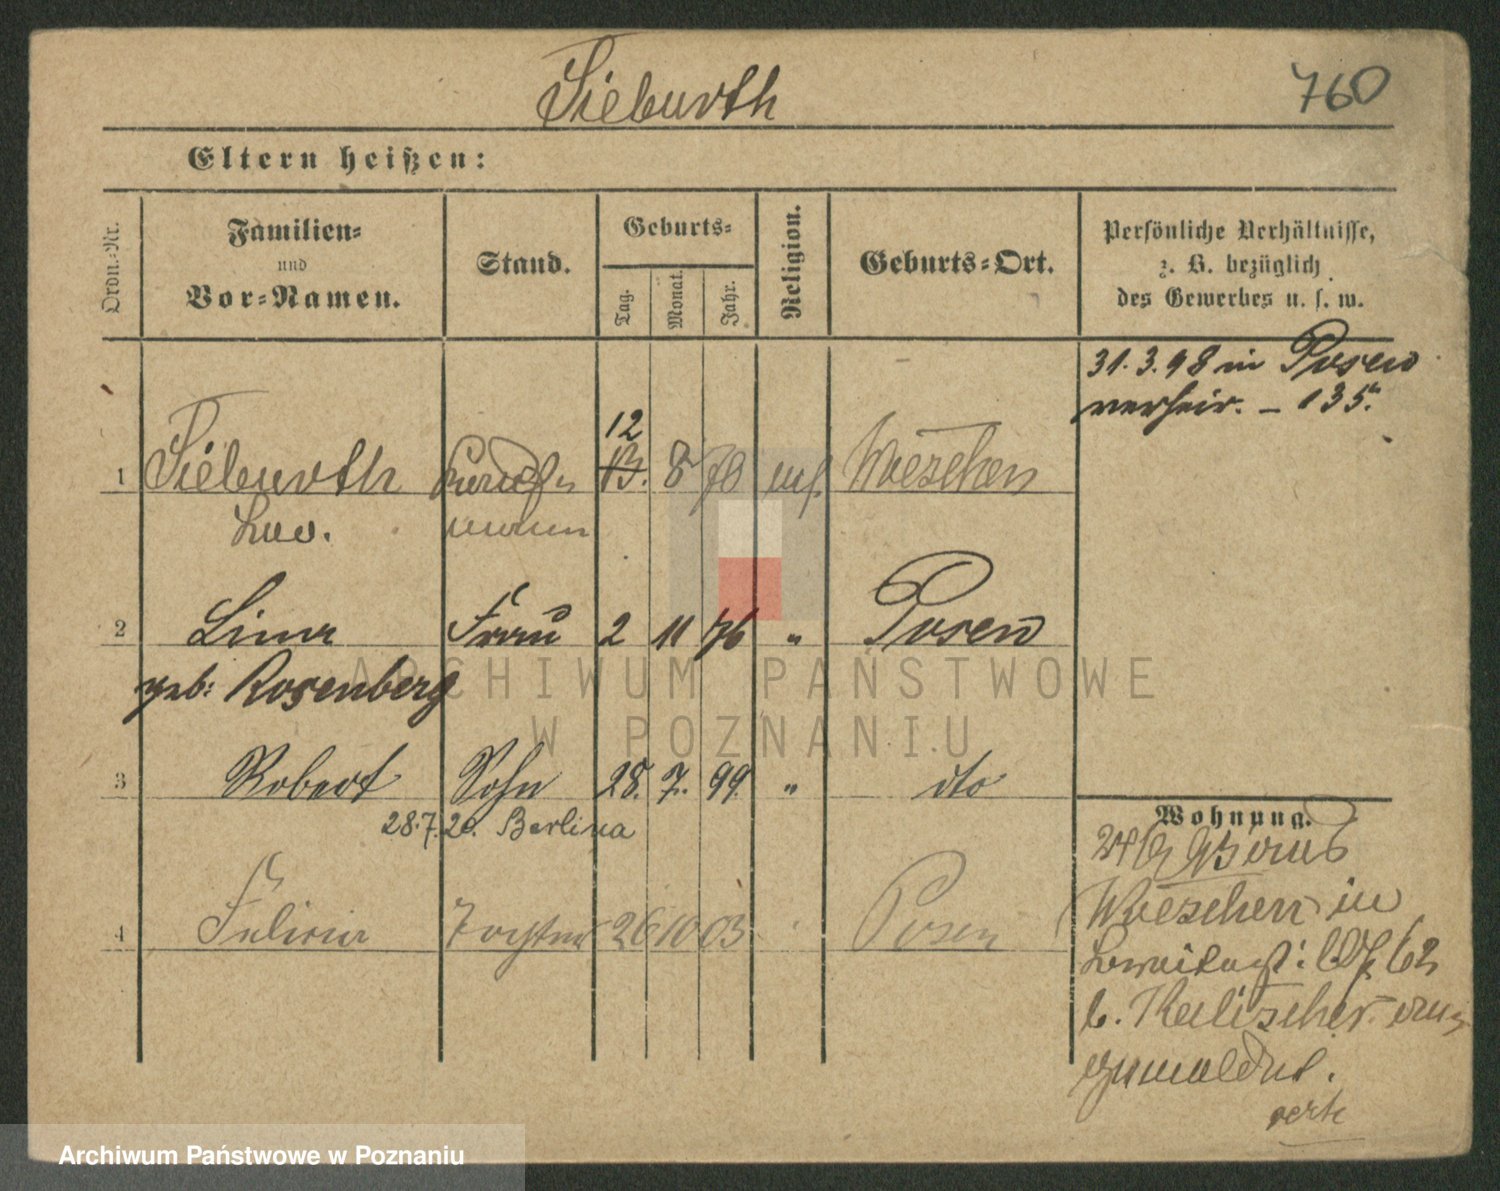 Sieburth
760
Eltern heißen:
Ordn.-Nr.
Familien-
und
Vor-Namen.
Stand.
Geburts-
Tag.
Monat.
Jahr.
Religion.
Geburts-Ort.
Persönliche Verhältnisse,
z. B. bezüglich
des Gewerbes u. s. w.
31. 3. 98 in Posen
verheir. – 135.
12
1 Sieburth Kauf- 13. 8 70 Wreschen
Leo. mann
2 Lina Frau 2 11 76 " Posen
geb: Rosenberg
3 Robert Sohn 28. 7. 99. " dto
28.7.20. Berlin
4 Felicia Tochter 26 10 03 Posen
Wohnung.
Wreschen in
62
b. Kalischer
gemeldet.
verte
ARCHIWUM PAŃSTWOWE
W POZNANIU
Archiwum Państwowe w Poznaniu